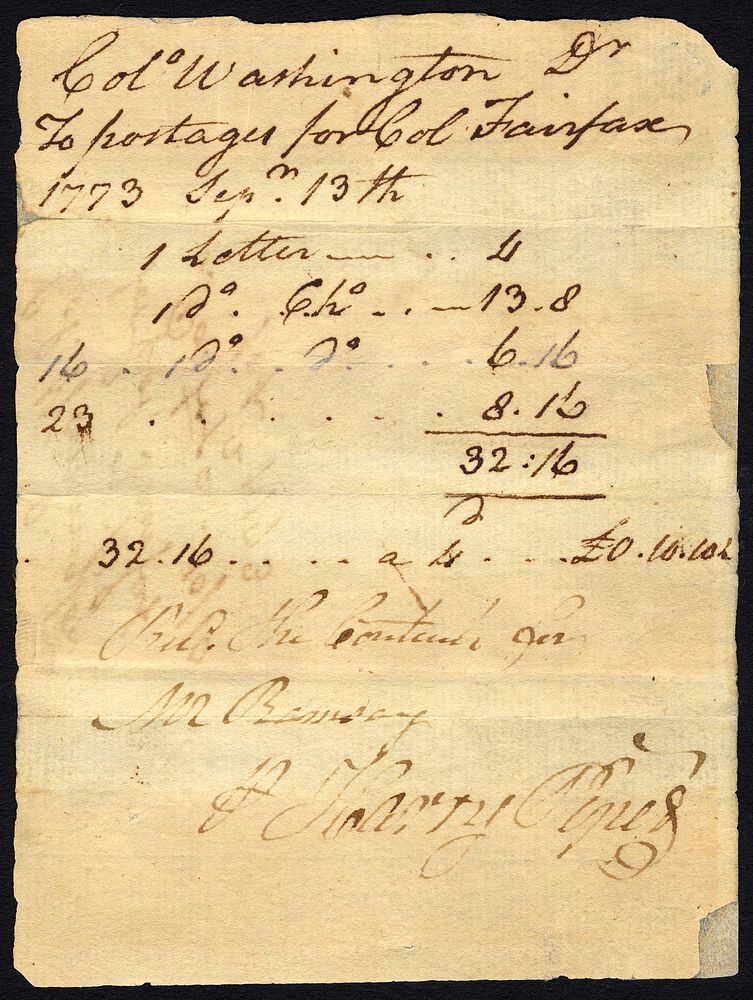 Colo Washington Dr
To postages for Col Fairfax
1773 Sepr. 13th
1 Letter — .. 4
1 Do. Cho - . — 13.8
16 . 1 Do . . Do . . . . 6.16
23 . . . . . . . 8.16
32:16
d
. 32.16 . . . . a 4 . . . £0.10.10½
Recd. the Contents for
Mr Ramsay
P Harry Piper